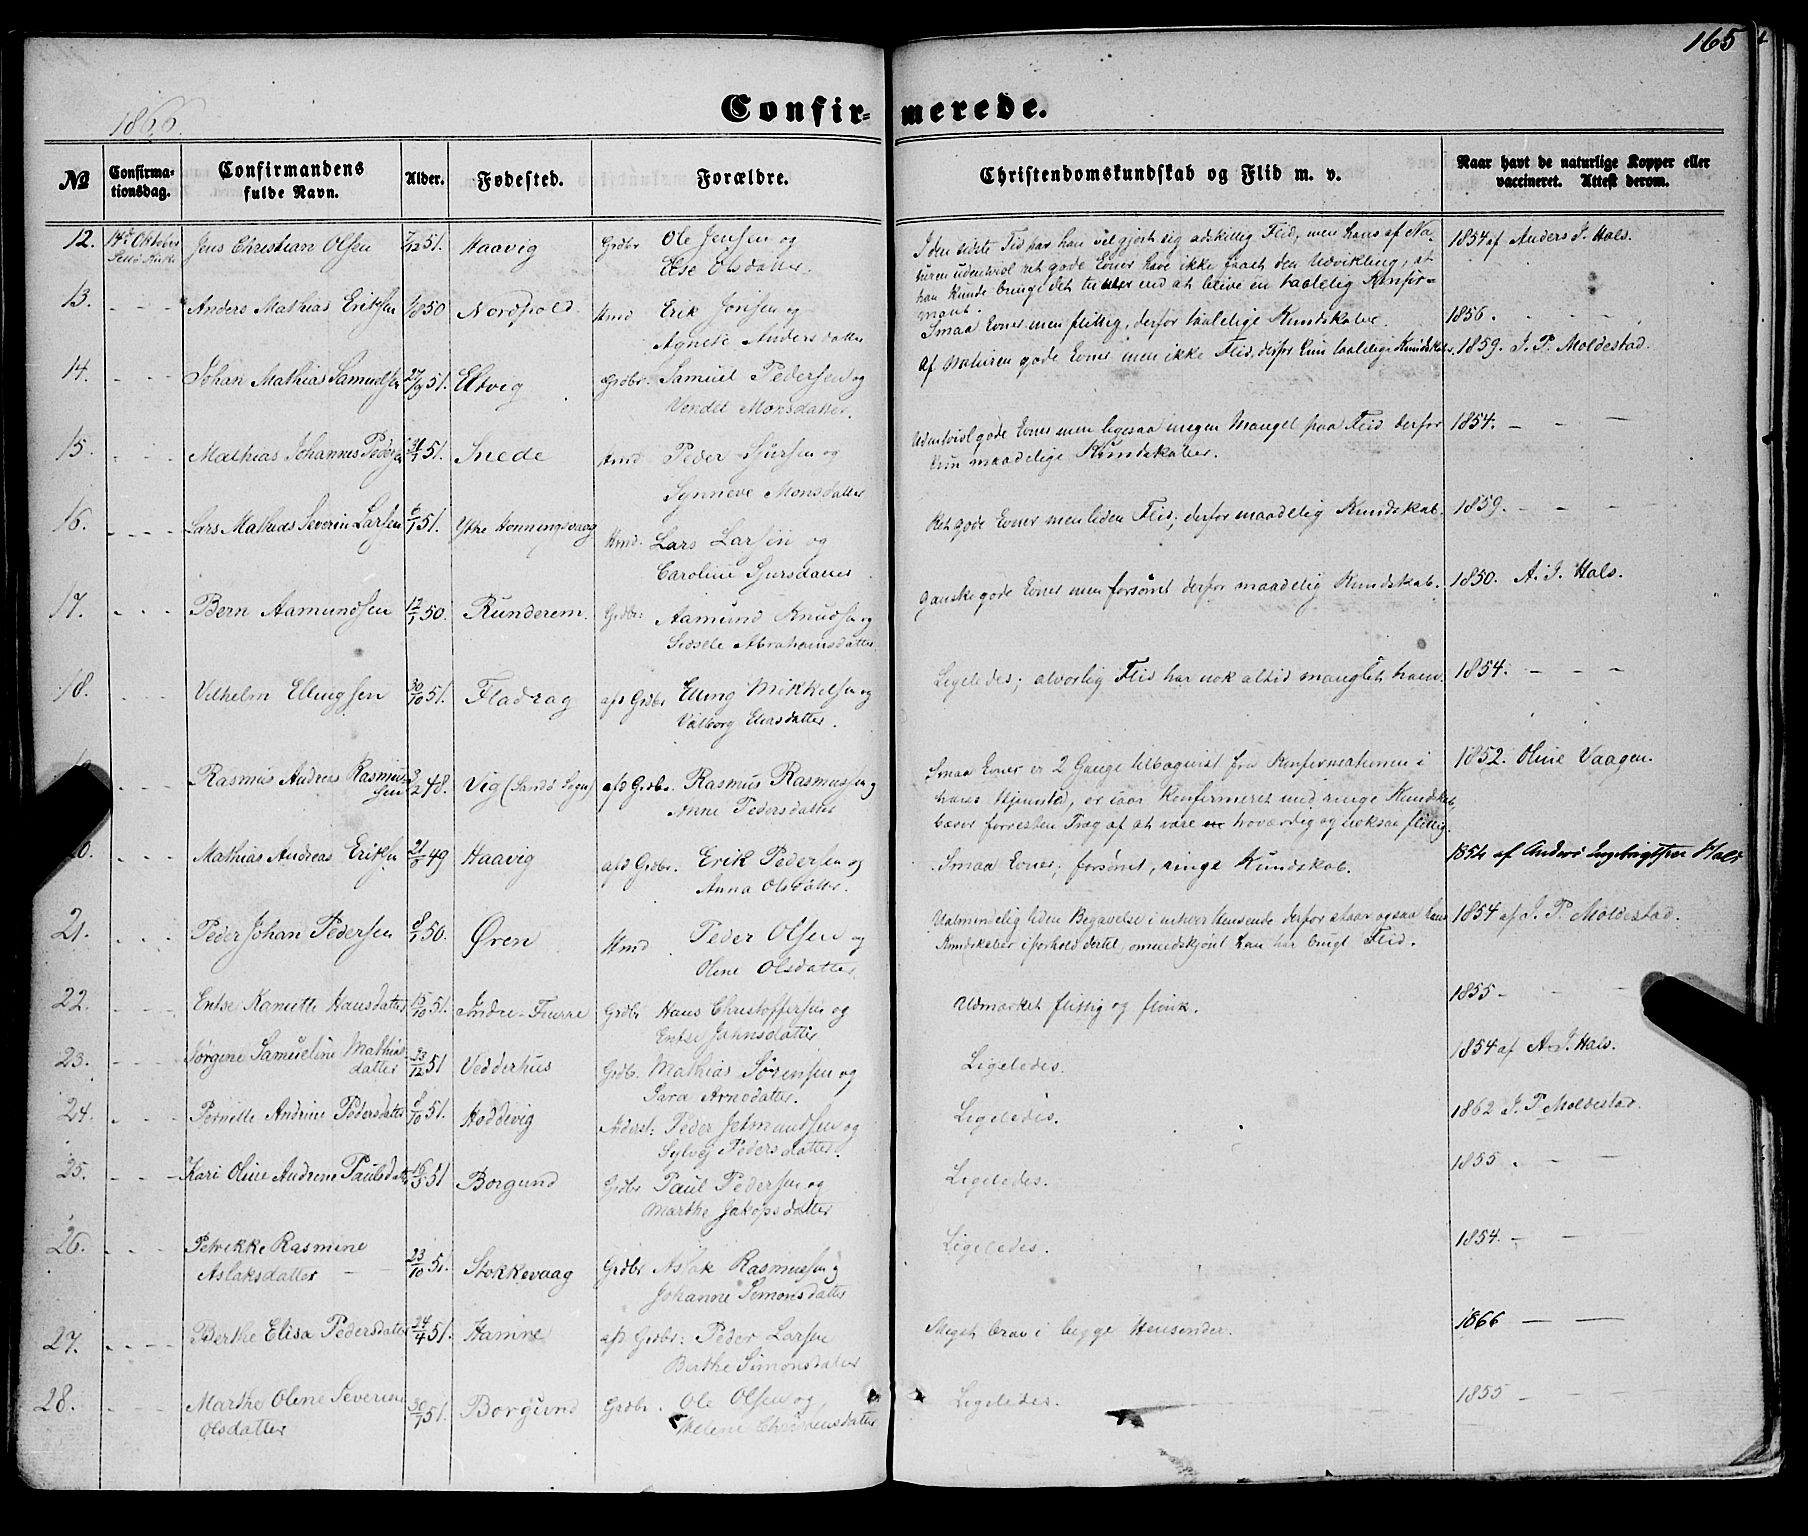 165
1866.
Confirmerede.
№
Confirmationsdag.
Confirmandens fulde Navn.
Alder.
Fødested.
Forældre.
Christendomskundskab og Flid m. v.
Naar havt de naturlige Kopper eller vaccineret. Attest derom.
12. 14de Oktober Jens Christian Olsen 7/12 51. Haavig Grdbr Ole Jensen og
Else Olsdatter.
I den sidste Tid har han vel gjort sig adskillig Flid, men hans af Na-
turen udentvivl ret gode Evner have ikke faaet den Udvikling, at
han kunde bringe det til mer end at blive en taalelig Konfir-
mant.
1854 af Anders I. Hals.
13. - - - Anders Mathias Eriksen 1/8 50 Nordpold. Hmd Erik Jonsen og
Agnete Andersdatter
Smaa Evner men flittig, derfor taalelige Kundskaber.
1856. - - -
14. - - - Johan Mathias Samuelsen 27/9 51. Eltvig Grdbr. Samuel Pedersen og
Vendel Monsdatter.
Af Naturen gode Evner men ikke Flid, derfor kun taalelige Kundskaber.
1859. I. P. Moldestad.
15. - - - Mathias Johannes Pedersen 51. Inede Hmd Peder Sjursen og
Synneve Monsdatter
Udentvivl gode Evner men ligesaa megen Mangel paa Flid derfor
kun maadelige Kundskaber.
1854. - - -
16. - - - Lars Mathias Severin Larsen 6/1 51. Ytre Honningsvaag Hmd. Lars Larsen og
Caroline Sjursdatter
Ret gode Evner men liden Flid; derfor maadelig Kundskab.
1859. - - -
17. - - - Bern Aamundsen 12/1 50. Runderem. Grdbr: Aamund Knudsen og
Sidsele Abrahamsdatter.
Ganske gode Evner men forsømt derfor maadelig Kundskab.
1850. A. I. Hals.
18. - - - Vilhelm Ellingsen 30/10 51. Fladrag afd Grdbr Elling Mikkelsen og
Valborg Eliasdatter.
Ligeledes; alvorlig Flid har nok altid manglet ham.
1854. - - -
- - - Rasmus Andreas Rasmus-
sen 3/2 48. Vig (Sandø Sogn) afd Grdbr. Rasmus Rasmussen og
Anne Pedersdatter
Smaa Evner er 2 Gange tilbagevist fra Konfirmationen i
hans Hjemsted, er iaar konfirmeret med ringe Kundskab,
bærer forresten Præg af at være troværdig og noksaa flittig.
1852. Oline Vaagen.
20. - - - Mathias Andreas Eriksen 49 Haavig afd Grdbr. Erik Pedersen og
Anna Olsdatter.
Smaa Evner; forsømt, ringe Kundskab.
1854 af Anders Ingebrigtsen Hals
21. - - - Peder Johan Pedersen 8/1 50. Øren Hmd Peder Olsen og
Oline Olsdatter
Ualmindelig liden Begavelse i enhver Henseende derfor staar ogsaa hans
Kundskaber i forhold dertil, omendskjønt han har brugt Flid.
1854 af I. P. Moldestad.
22. - - - Entse Kanutte Hansdatter 15/10 51. Indre-Furre Grdbr Hans Christoffersen og
Entse Jahnsdatter
Udmærket flittig og flink.
1855 - - -
23. - - - Jørgine Samueline Mathias-
datter 23/12 51 Vedderhus Grdb. Mathias Sörensen og
Sara Arnedatter.
Ligeledes.
1854 af A. I. Hals.
24. - - - Pernille Andrine Pedersdatter 8/10 51. Hoddevig Aderst: Peder Jetmundsen og
Sylvej Pedersdatter
Ligeledes.
1862 I. P. Moldestad.
25. - - - Kari Oline Andrine Paulsdatter 16/5 51 Borgund Grdbr Paul Pedersen og
Marthe Jakopsdatter
Ligeledes.
1855 - - -
26. - - - Petrikke Rasmine
Aslaksdatter 23/10 51 Stokkevaag Grdbr Aslak Rasmussen og
Johanne Simonsdatter
Ligeledes.
1854. - - -
27. - - - Berthe Elisa Pedersdatter 24/4 51. Hamne afd Grdbr: Peder Larsen
Berthe Simonsdatter
Meget brav i begge Henseender.
1866 - -
28. - - - Marthe Oline Severine
Olsdatter 30/7 51. Borgund Grdbr. Ole Olsen og
Helene Christensdatter
Ligeledes.
1855 - -